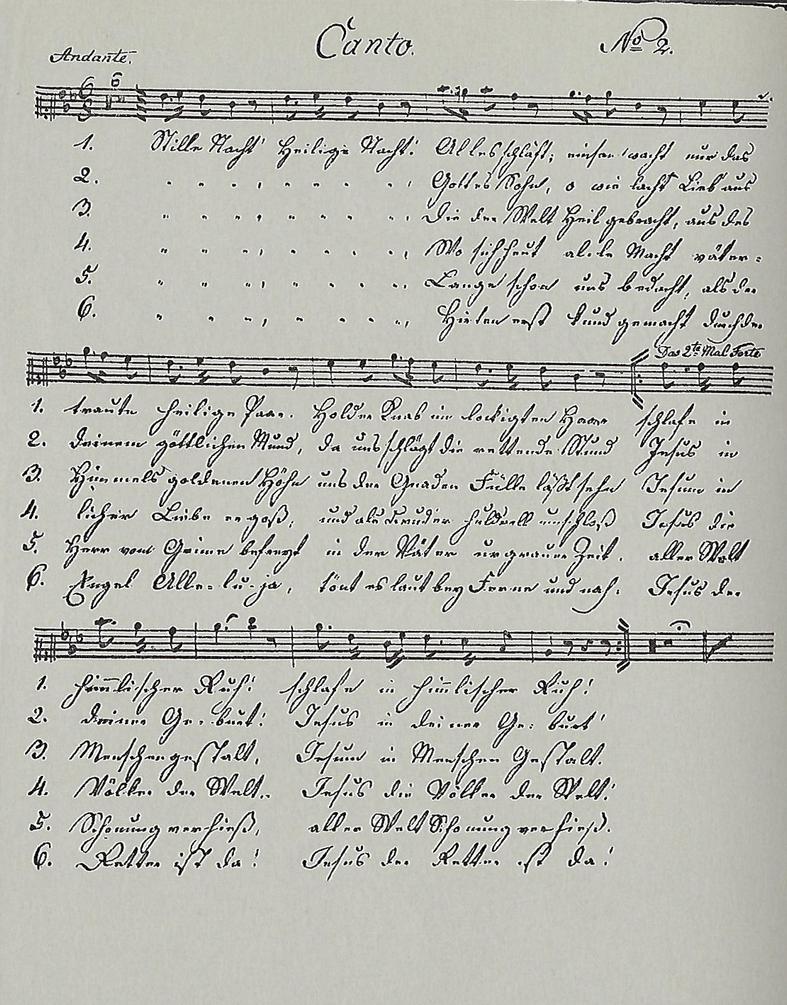 Canto. No 2.
Andante.
6
8
6
1. Stille Nacht! Heilige Nacht! Alles schläft; einsam wacht nur das
2. " " , " " " " " Gottes Sohn, o wie lacht Lieb aus
3. " " , " " " " " Die der Welt Heil gebracht, aus des
4. " " , " " " " " Wo sich heut alle Macht väter-
5. " " , " " " " " Lange schon uns bedacht, als der
6. " " , " " " " " Hirten erst kund gemacht durch der
Das 2te Mal Forte
1. traute heilige Paar. Holder Knab im lockigten Haar schlafe in
2. deinem göttlichen Mund, da uns schlägt die rettende Stund Jesus in
3. Himmels goldenen Höhn uns der Gnaden Fülle läßt sehn Jesum in
4. licher Liebe ergoß, und als Bruder huldvoll umschloß Jesus die
5. Herr vom Grime befreyt in der Väter urgrauer Zeit. aller Welt
6. Engel Alle-lu-ja, tönt es laut bey Ferne und nah: Jesus der
1. himmlischer Ruh! schlafe in himmlischer Ruh!
2. deiner Ge-burt! Jesus in deiner Ge-burt!
3. Menschengestalt, Jesum in Menschen Gestalt.
4. Völker der Welt.. Jesus die Völker der Welt!
5. Schonung verhieß, aller Welt Schonung verhieß.
6. Retter ist da! Jesus der Retter ist da!